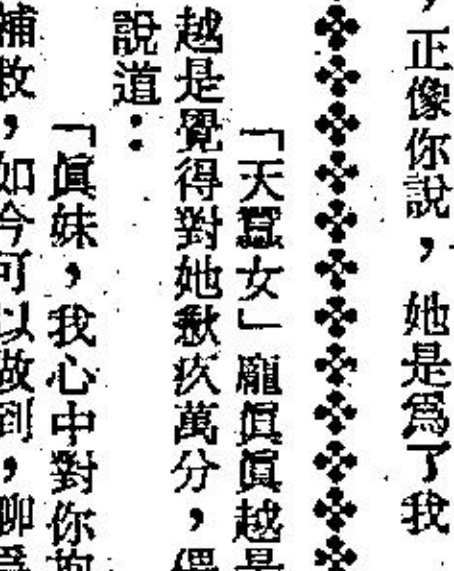 ，正像你說，她是爲了我
「天蠶女」龐眞眞越是
越是覺得對她歉疚萬分，偎
說道：
「眞妹，我心中對你抱
補救，如今可以做到，聊爲